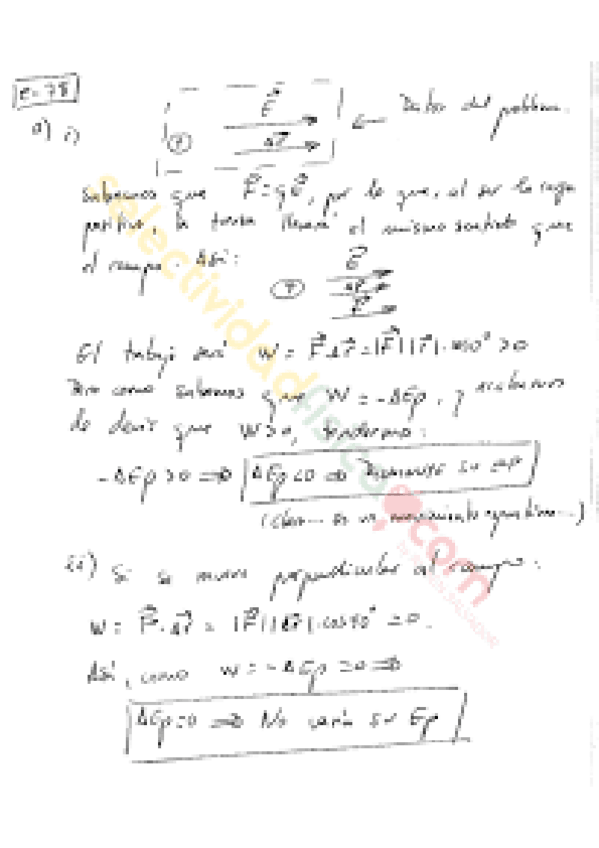 e-78
a) i)
E⃗
Δr⃗
+
← Datos del problema.
Sabemos que F⃗ = qE⃗, por lo que, al ser la carga
positiva, la fuerza llevará el mismo sentido que
el campo. Así:
E⃗
Δr⃗
F⃗
+
El trabajo será W = F⃗·Δr⃗ = |F⃗||r⃗|·cos0° > 0
Pero como sabemos que W = -ΔEp, y acabamos
de decir que W>0, tendremos:
-ΔEp > 0 ⇒ ΔEp < 0 ⇒ Disminuye su Ep
(claro... es un movimiento espontáneo...)
ii) Si se mueve perpendicular al campo:
W = F⃗·Δr⃗ = |F⃗||Δr⃗|·cos90° = 0.
Así, como W = -ΔEp = 0 ⇒
ΔEp = 0 ⇒ No varía su Ep
selectividadfisica.com
SALVADOR